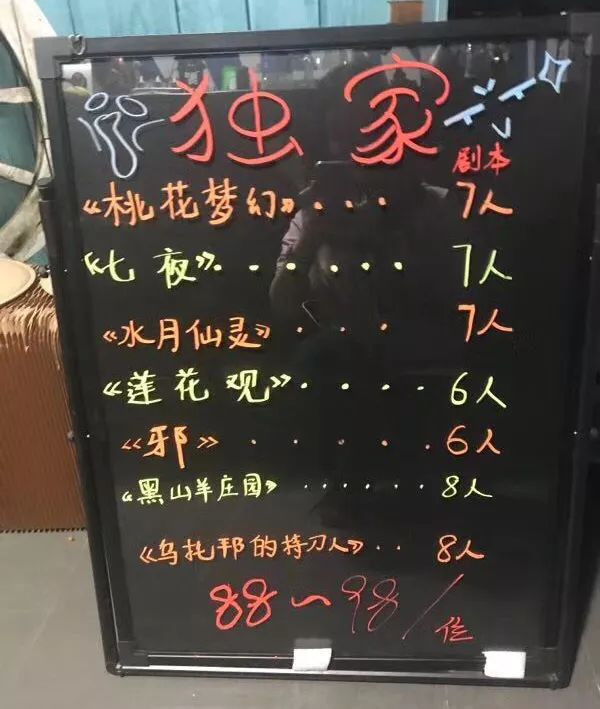 独家
剧本
《桃花梦幻》... 7人
《七夜》...... 7人
《水月仙灵》... 7人
《莲花观》..... 6人
《邪》...... 6人
《黑山羊庄园》...... 8人
《乌托邦的持刀人》.. 8人
88~98/位